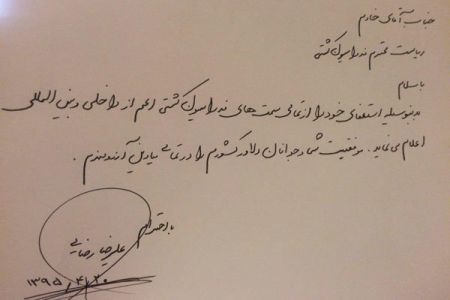 جناب آقای خادم
ریاست محترم فدراسیون کشتی
با سلام
بدینوسیله استعفای خود را از تمامی سمت های فدراسیون کشتی اعم از داخلی و بین المللی
اعلام می نمایم. موفقیت شما و جوانان دلاور کشورم را در تمامی میادین آرزومندم.
با احترام
علیرضا رضایی
۱۳۹۵/۴/۲۰